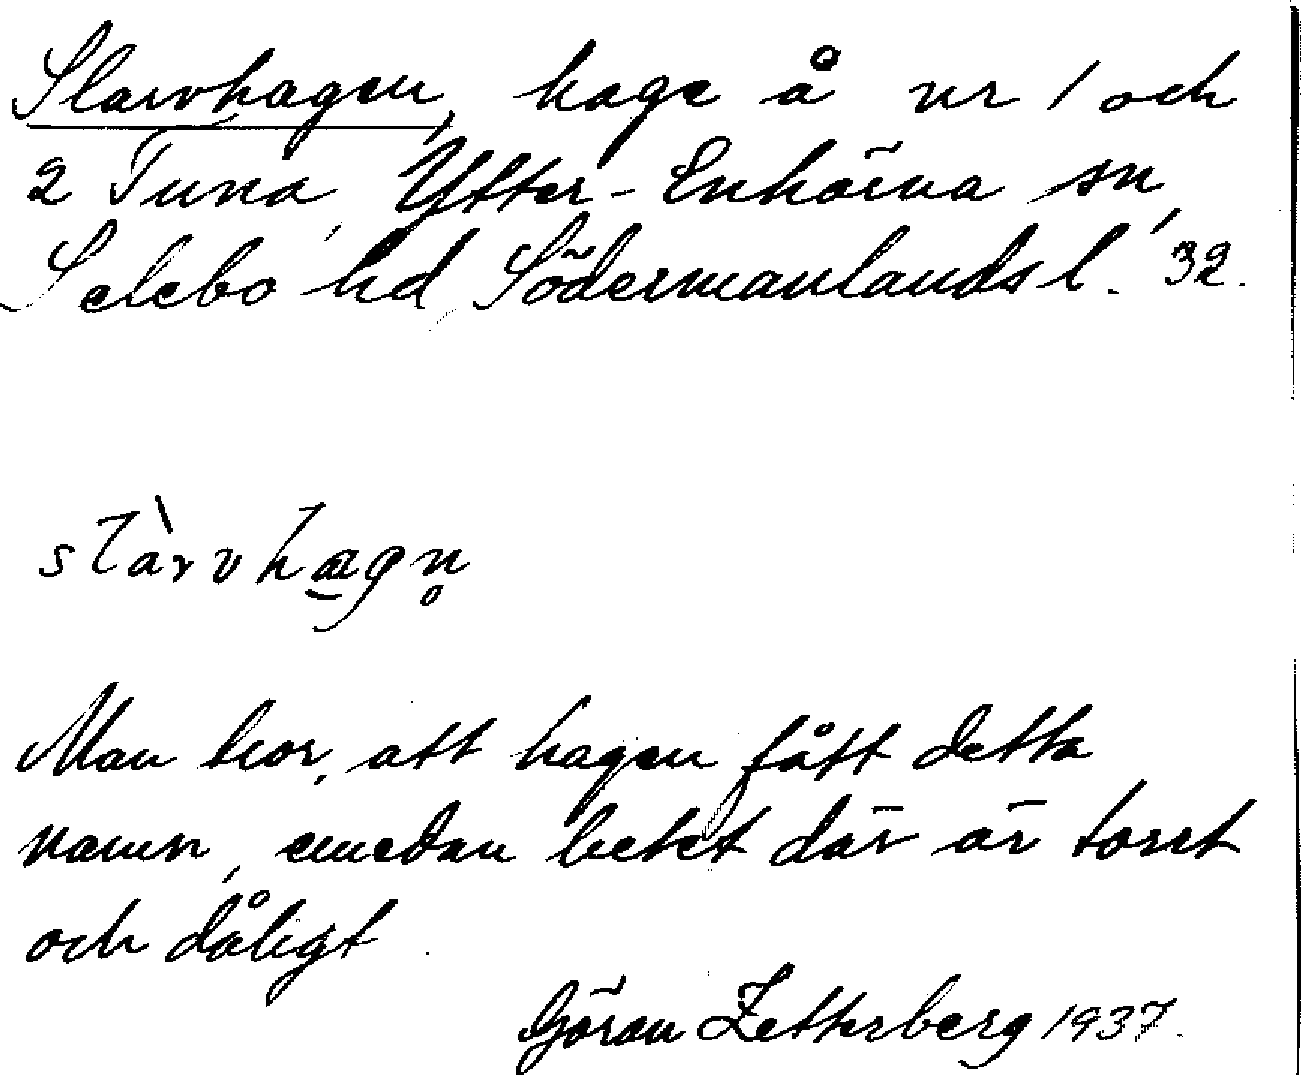 Slarvhagen, hage å nr 1 och
2 Tuna, Ytter-Enhörna sn,
Selebo hd, Södermanlands l. '32.
slàrvhagn̥
Man tror, att hagen fått detta
namn, emedan betet där är torrt
och dåligt.
Göran Zetterberg 1937.